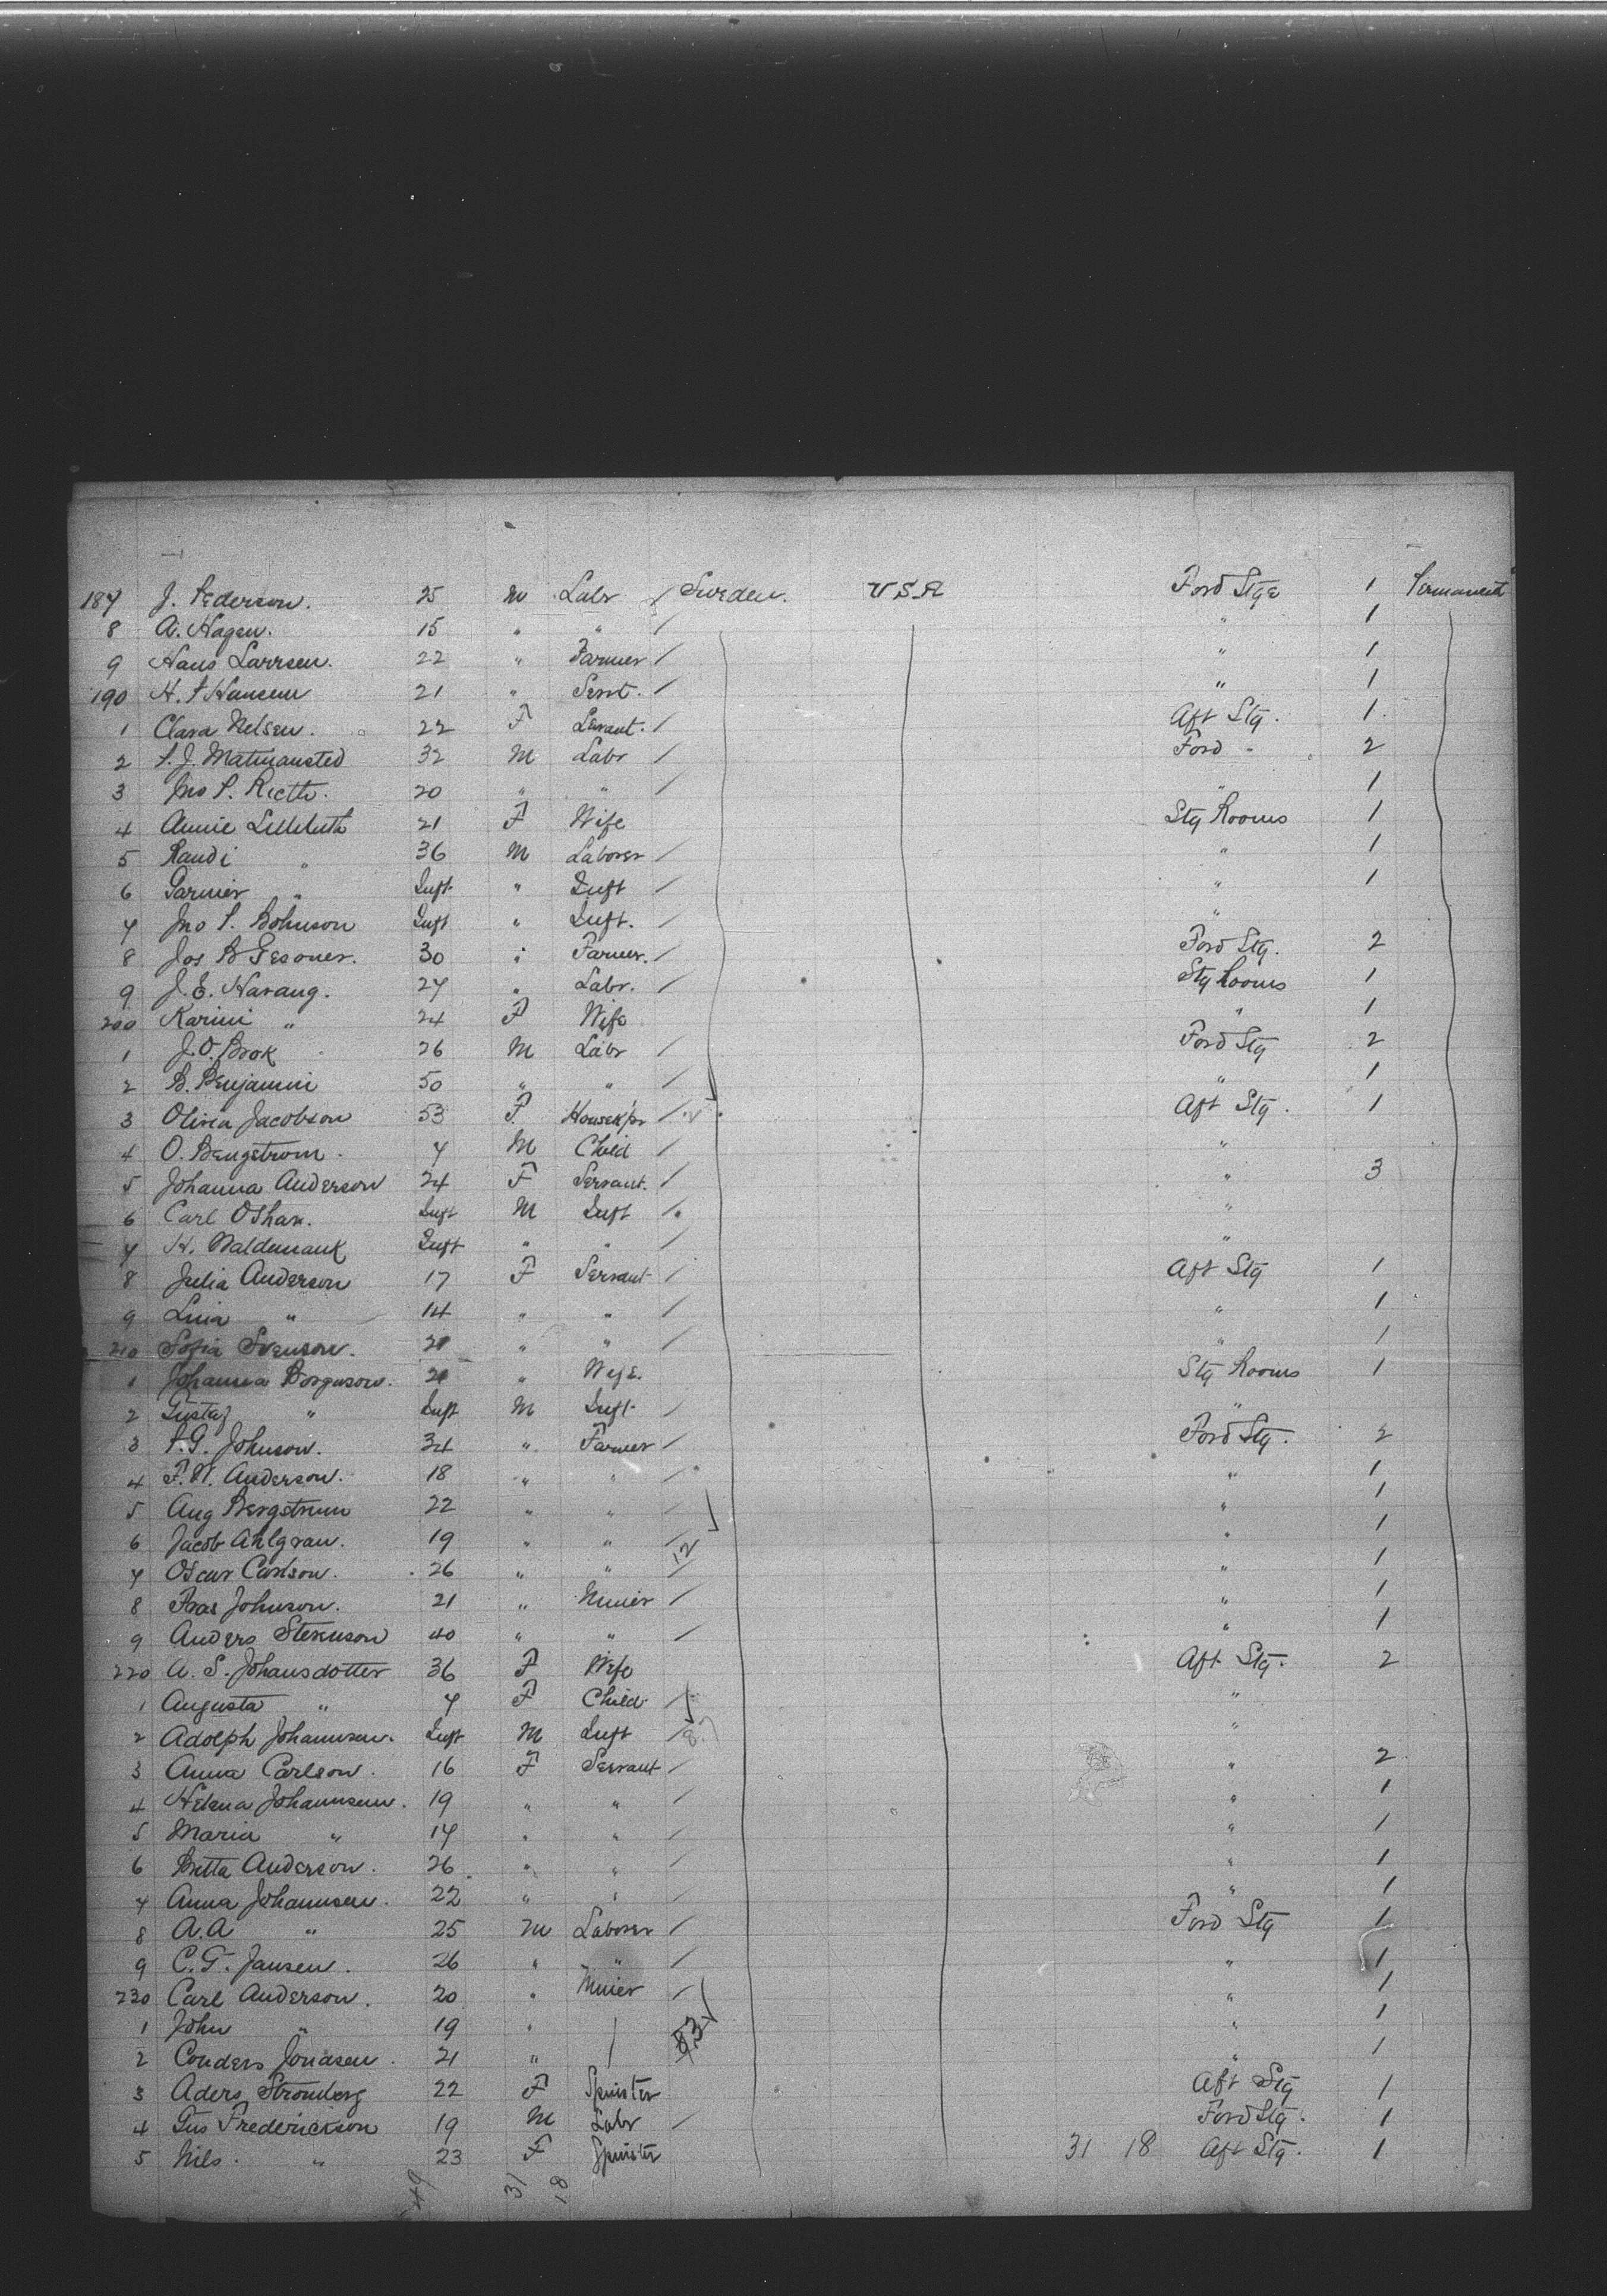 187 J. Pederson. 25 M Labr / Sweden. U S A Ford Stge 1 Permanent
8 A. Hagen. 15 " " / " 1
9 Hans Larrsen. 22 " Farmer / " 1
190 H. P Hansen 21 " Servt. / " 1
1 Clara Nelsen. 22 F Servant. / Aft Stg. 1
2 32 M Labr / Ford " 2
3 Jno P. 20 " " / " 1
4 Annie 21 F Wife Stg Rooms 1
5 Randi " 36 M Laborer / " 1
6 " Inft " Inft / " 1
7 Jno P. Bohnson Inft " Inft. / "
8 Jos B Gesoner. 30 " Farmer. / Ford Stg. 2
9 J. E. Havang. 27 " Labr. / Stg Rooms 1
200 Karini " 24 F Wife " 1
1 J. O. Brok 26 M Labr / Ford Stg 2
2 B. Benjamin 50 " " / " 1
3 Olivia Jacobson 53 F. Housek'pr / Aft Stg. 1
4 O. Bengstrom. 7 M Child / "
5 Johanna Anderson 24 F Servant. / " 3
6 Carl Inft M Inft / "
7 H. Inft " " / "
8 Julia Anderson 17 F Servant / Aft Stg 1
9 Lina " 14 " " / " 1
210 Sofia Svenson. 20 " " / " 1
1 Johanna Borguson. 21 " Wife. Stg Rooms 1
2 Gustaf " Inft M Inft / "
3 P. G. Johnson. 34 " Farmer / Ford Stg. 2
4 F. W. Anderson. 18 " " / " 1
5 Aug Bergstrum 22 " " / " 1
6 Jacob Ahlgran. 19 " " / " 1
7 Oscar Carlson. 26 " " / 12 " 1
8 Fras Johnson. 21 " Minier / " 1
9 Anders Stenuson 40 " " / " 1
220 A. S. Johansdotter 36 F Wife Aft Stg. 2
1 Augusta " 7 F Child / "
2 Adolph Johannsen. Inft M Inft / "
3 Anna Carlson. 16 F Servant / " 2
4 Helena Johannsen. 19 " " / " 1
5 Maria " 17 " " / " 1
6 Britta Anderson. 26 " " / " 1
7 Anna Johannsen. 22 " " / " 1
8 A. A " 25 M Laborer / Ford Stg 1
9 C. G. Jansen. 26 " " / " 1
230 Carl Anderson. 20 " Minier / " 1
1 John " 19 " / " 1
2 Conders Jonasen. 21 " / " 1
3 Aders Stromberg 22 F Spinster Aft Stg 1
4 Gus Frederickson 19 M Labr / Ford Stg. 1
5 Nils. " 23 F Spinster 31 18 Aft Stg. 1
49 31 18